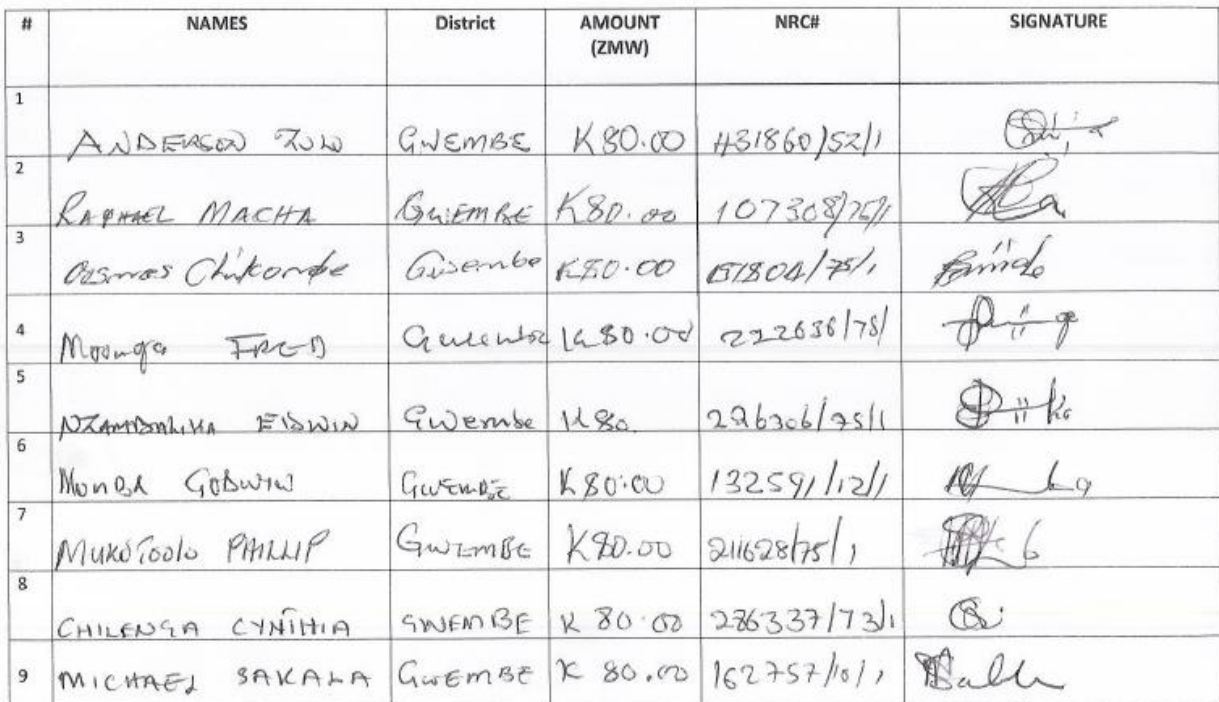 # NAMES District AMOUNT (ZMW) NRC# SIGNATURE
1 ANDERSON ZULU GWEMBE K80.00 431860/52/1
2 RAPHAEL MACHA GWEMBE K80.00 107308/75/1
3 Chikombe Gwembe K80.00
4 Moonga FRED Gwembe K80.00 222636/75/
5 EDWIN Gwembe K80 226306/75/1
6 GODWIN GWEMBE K80.00 132591/12/1
7 PHILLIP GWEMBE K80.00 211628/75/1
8 CHILENGA CYNTHIA GWEMBE K 80.00 286337/73/1
9 MICHAEL SAKALA GWEMBE K 80.00 162757/10/1